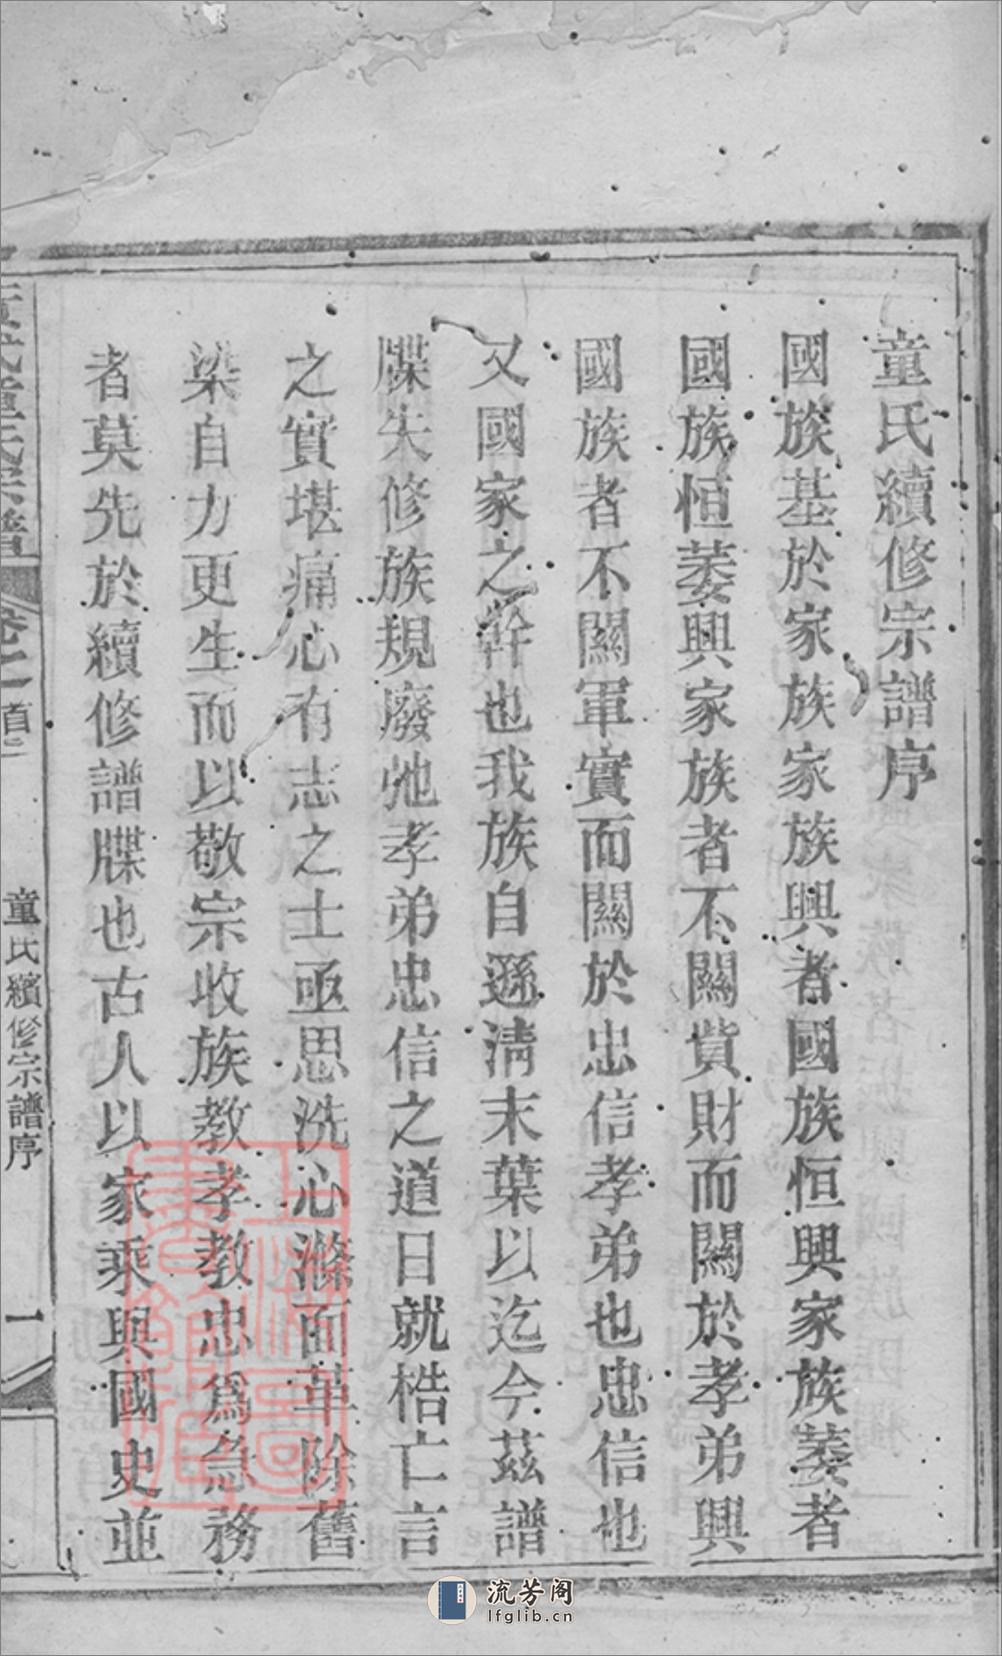 童氏續修宗譜序
國族基於家族家族興者國族恒興家族萎者
國族恒萎興家族者不關貲財而關於孝弟興
國族者不關軍實而關於忠信孝弟也忠信也
又國家之幹也我族自遜淸末葉以迄今茲譜
牒失修族規廢弛孝弟忠信之道日就梏亡言
之實堪痛心有志之士亟思洗心滌面革除舊
染自力更生而以敬宗收族教孝教忠爲急務
者莫先於續修譜牒也古人以家乘與國史並
童氏宗譜
卷
首
童氏續修宗譜序
一
上海圖書館藏
流芳阁
lfglib.cn